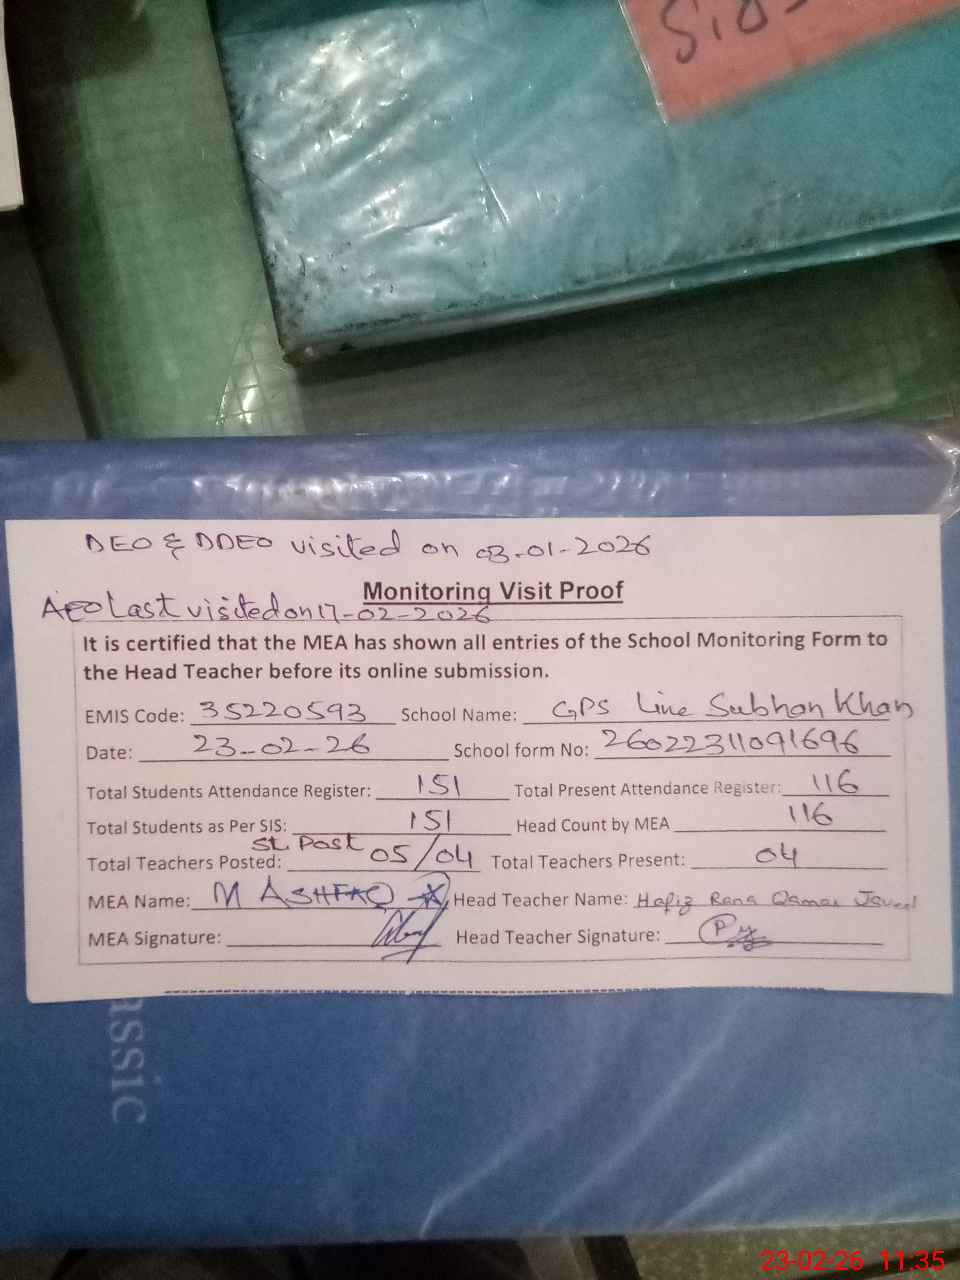 DEO & DDEO visited on 03-01-2026
Monitoring Visit Proof
AEO Last visited on 17-02-2026
It is certified that the MEA has shown all entries of the School Monitoring Form to
the Head Teacher before its online submission.
EMIS Code: 35220593 School Name: GPS Line Subhan Khan
Date: 23-02-26 School form No: 26022311091696
Total Students Attendance Register: 151 Total Present Attendance Register: 116
Total Students as Per SIS: 151 Head Count by MEA 116
St. Post
Total Teachers Posted: 05/04 Total Teachers Present: 04
MEA Name: M ASHFAQ Head Teacher Name: Hafiz Rana Qamar Javed
MEA Signature: Head Teacher Signature:
assic
23-02-26 11:35